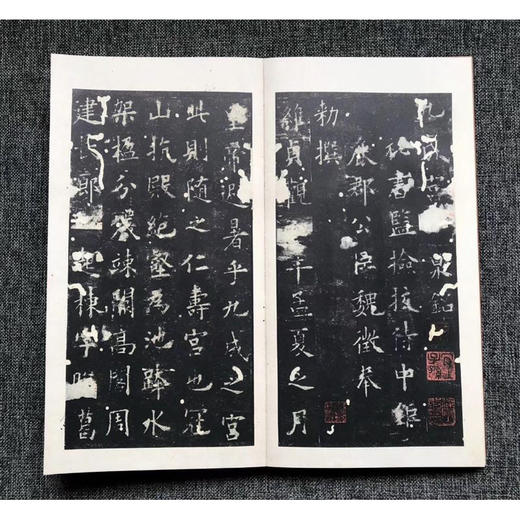 九成宮 泉銘
秘書監撿挍侍中鉅
鹿郡公臣魏徵奉
勑撰
維貞觀 年孟夏之月
皇帝避暑乎九成之宮
此則随之仁壽宮也冠
山抗殿絶壑為池跨水
架楹分巖竦闕高閣周
建 廊 起棟宇膠葛